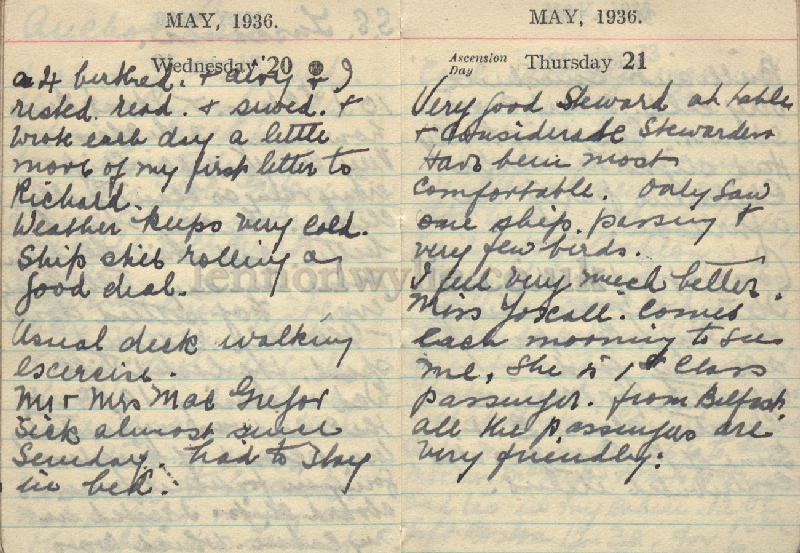 MAY, 1936.
Wednesday 20
a 4 berthed. + & I
rested. read. + sewed. +
wrote each day a little
more of my first letter to
Richard.
Weather keeps very cold.
Ship still rolling a
good deal.
Usual deck walking
excercise.
Mr + Mrs Mac Gregor
sick almost since
Sunday. had to stay
in bed.
MAY, 1936.
Ascension Day Thursday 21
Very good Steward at table
+ considerate Stewardess
Have been most
comfortable. Only saw
one ship. passing +
very few birds.
I feel very much better.
Miss Yoxall. Comes
each morning to see
me, She is 1st Class
passenger. from Belfast.
all the passengers are
very friendly.
lennonwylie.co.uk